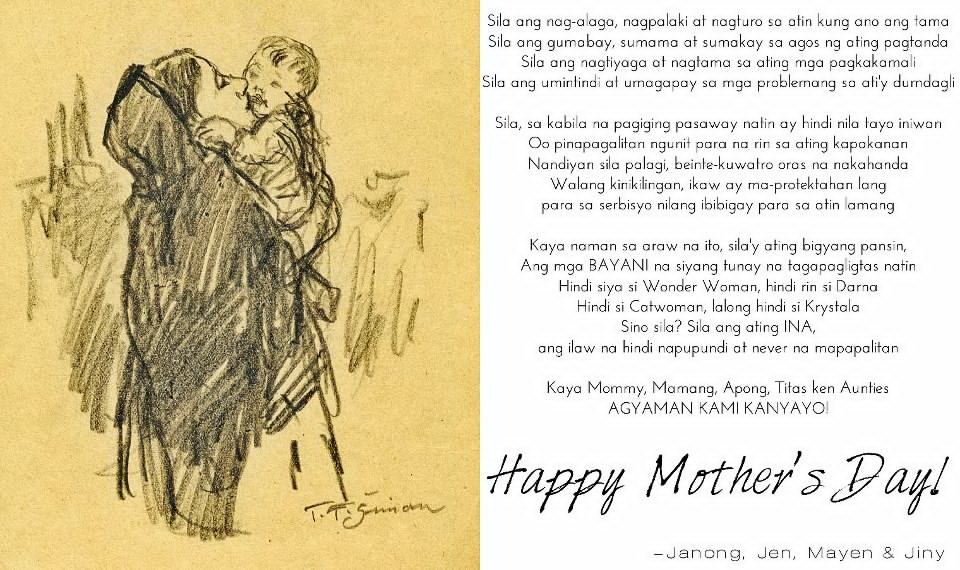 Sila ang nag-alaga, nagpalaki at nagturo sa atin kung ano ang tama
Sila ang gumabay, sumama at sumakay sa agos ng ating pagtanda
Sila ang nagtiyaga at nagtama sa ating mga pagkakamali
Sila ang umintindi at umagapay sa mga problemang sa ati'y dumdagli
Sila, sa kabila na pagiging pasaway natin ay hindi nila tayo iniwan
Oo pinapagalitan ngunit para na rin sa ating kapakanan
Nandiyan sila palagi, beinte-kuwatro oras na nakahanda
Walang kinikilingan, ikaw ay ma-protektahan lang
para sa serbisyo nilang ibibigay para sa atin lamang
Kaya naman sa araw na ito, sila'y ating bigyang pansin,
Ang mga BAYANI na siyang tunay na tagapagligtas natin
Hindi siya si Wonder Woman, hindi rin si Darna
Hindi si Catwoman, lalong hindi si Krystala
Sino sila? Sila ang ating INA,
ang ilaw na hindi napupundi at never na mapapalitan
Kaya Mommy, Mamang, Apong, Titas ken Aunties
AGYAMAN KAMI KANYAYO!
Happy Mother's Day!
–Janong, Jen, Mayen & Jiny
T. F. Šimon